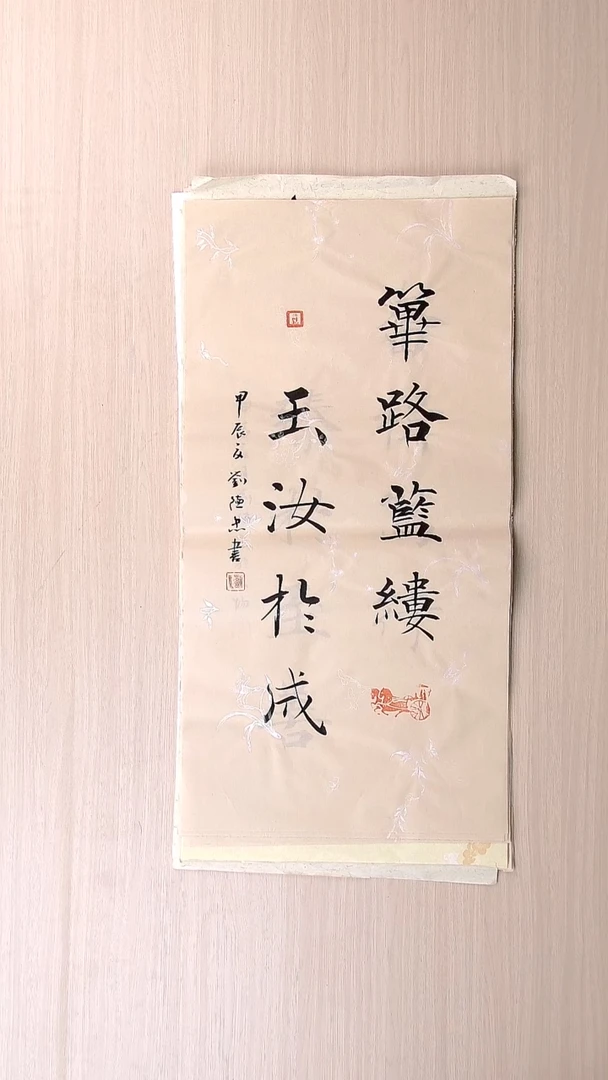 篳路藍縷
玉汝於成
甲辰夏劉德忠書